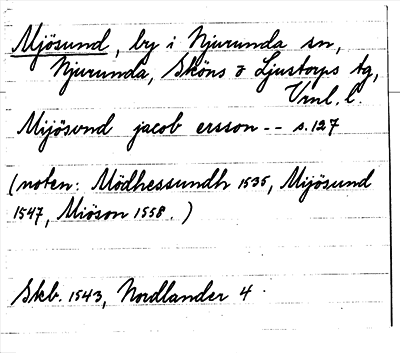 Mjösund, by i Njurunda sn,
Njurunda, Sköns & Ljustorps tg,
Vrnl. l.
Mijösvnd jacob ersson -- s. 127
(noten: Mödhessundh 1535, Mijösund
1547, Miöson 1558.)
Skb. 1543, Nordlander 4